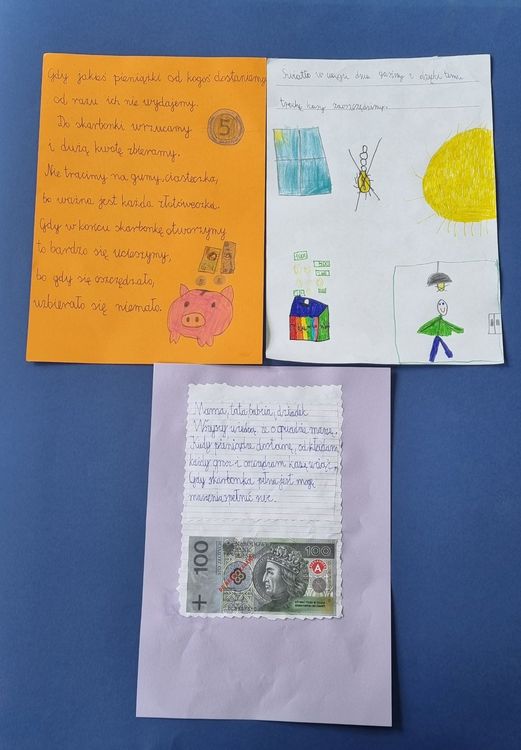 Gdy jakieś pieniążki od kogoś dostaniemy
od razu ich nie wydajemy.
Do skarbonki wrzucamy
i dużą kwotę zbieramy.
Nie tracimy na gumy, ciasteczka,
bo ważna jest każda złotóweczka.
Gdy w końcu skarbonkę otworzymy
to bardzo się ucieszymy,
bo gdy się oszczędzało,
uzbierało się niemało.
5
Światło w ciągu dnia gasimy i dzięki temu
trochę kasy zaoszczędzimy.
Mama, tata babcia, dziadek
Wszyscy wiedzą że o
Kiedy pieniądze dostanę, odkładam
każdy grosz i oszczędzam kasę wciąż,
Gdy skarbonka pełna jest moje
marzenia spełnić chce.
100
100
A